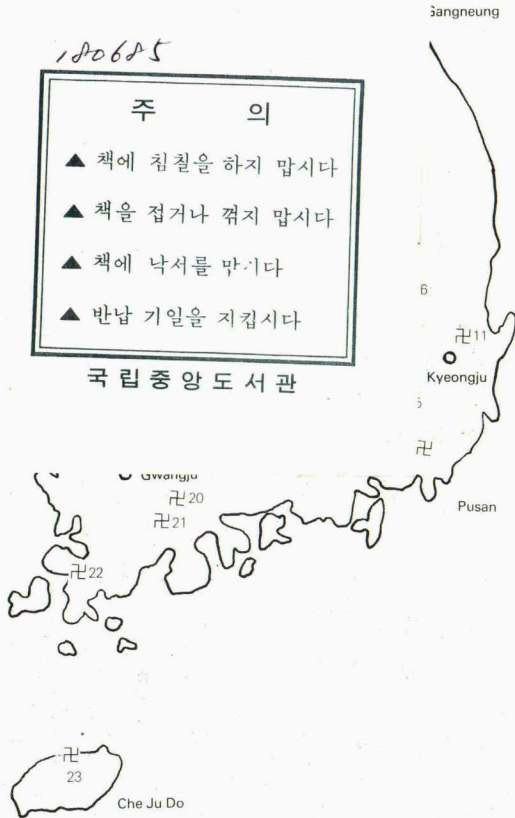 Gangneung
180685
주 의
▲ 책에 침칠을 하지 맙시다
▲ 책을 접거나 꺾지 맙시다
▲ 책에 낙서를 맙시다
▲ 반납 기일을 지킵시다
국립중앙도서관
6
卍11
Kyeongju
5
卍
Gwangju
Pusan
卍20
卍21
卍22
卍
23
Che Ju Do